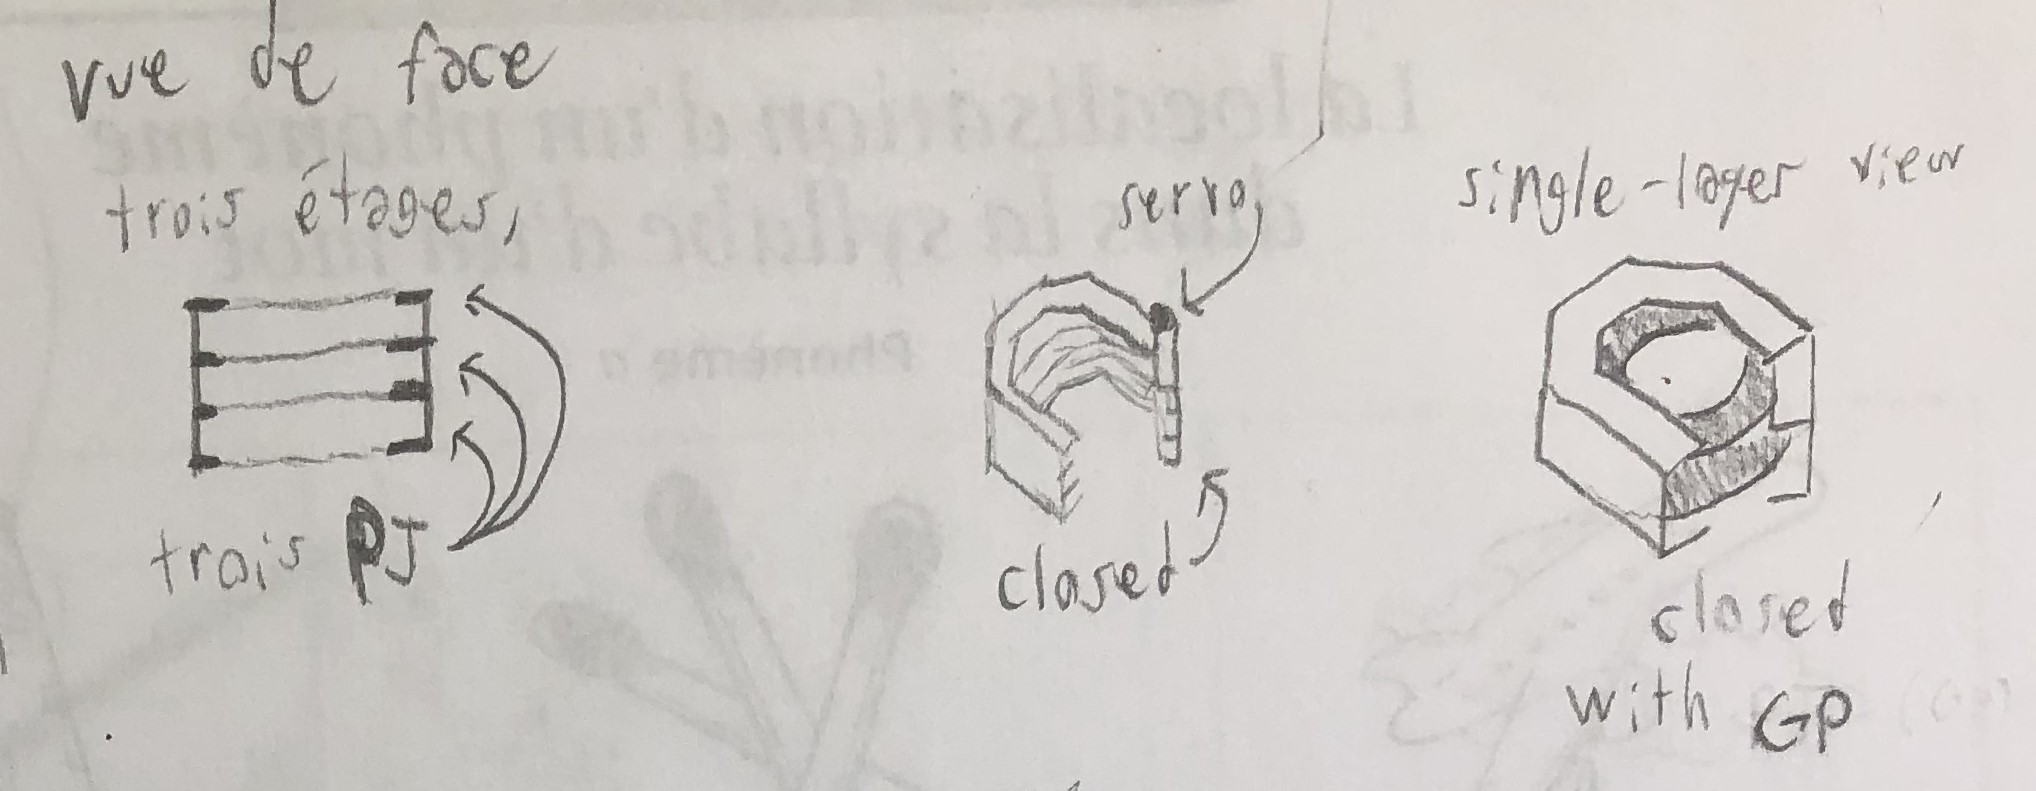 vue de face
trois étages,
trois PJ
servo
closed
single-layer view
closed
with GP
La localisation d'un phonème
dans la syllabe d'un mot
Phonème